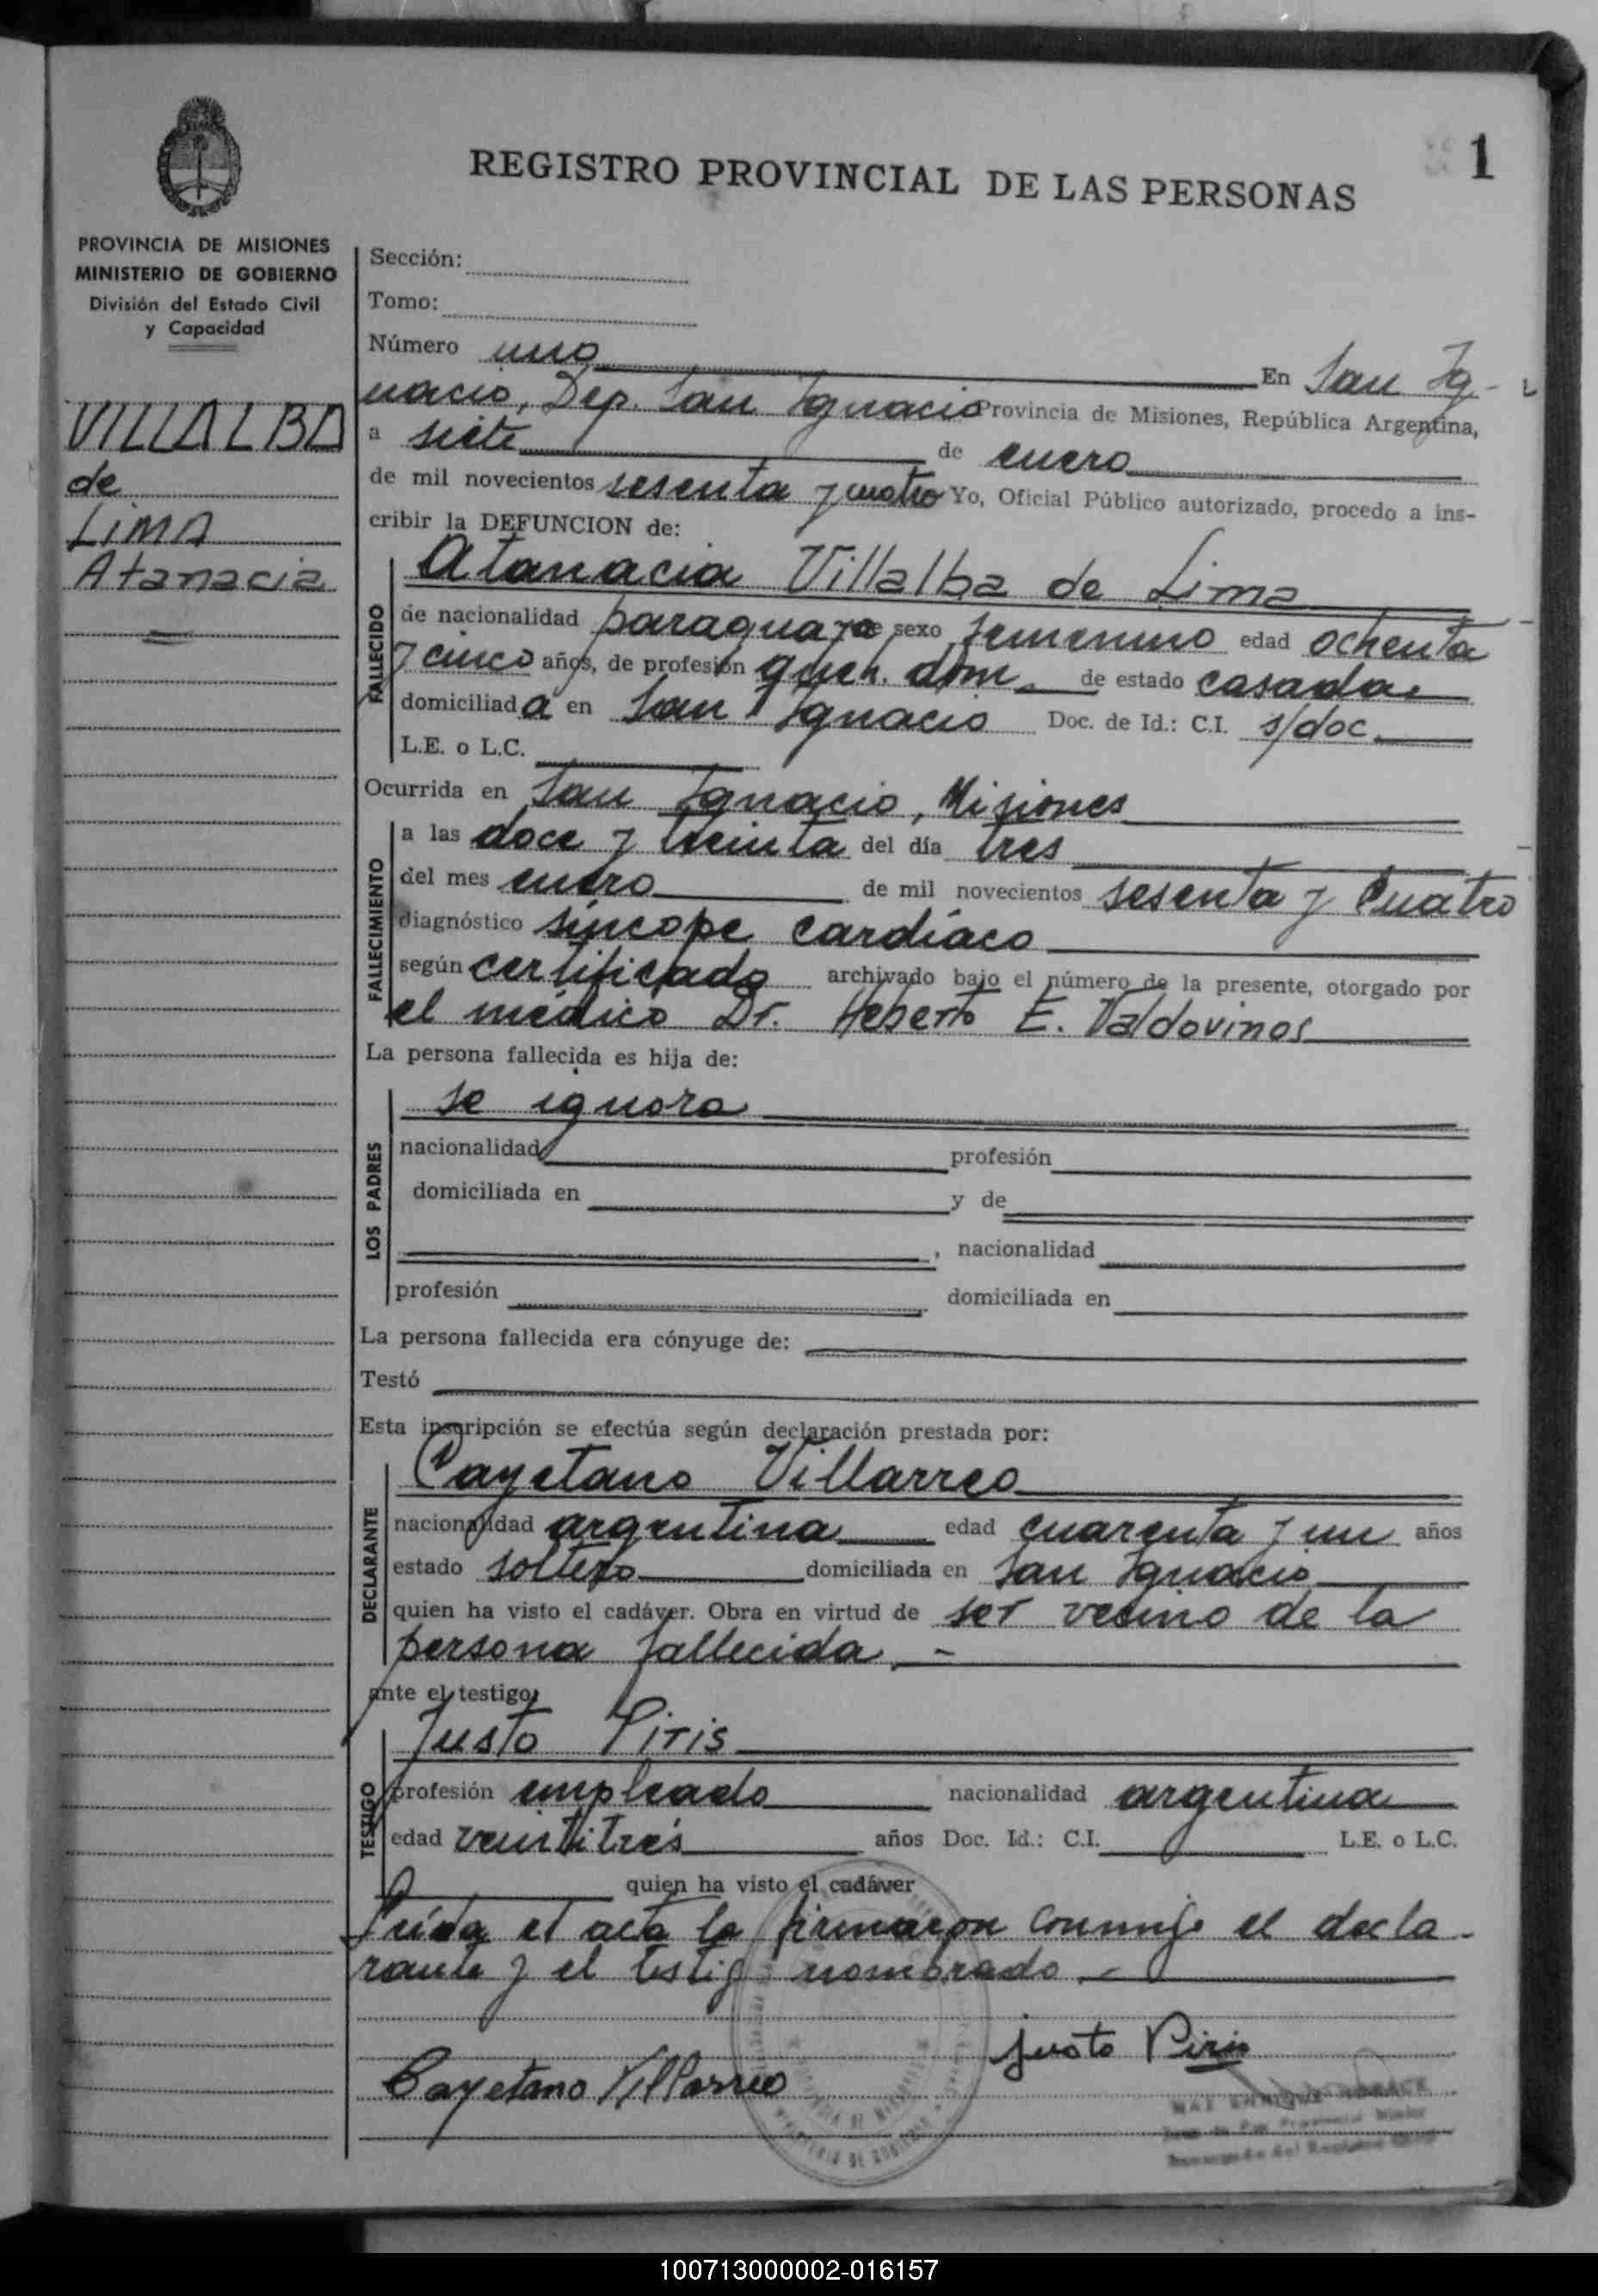 1
REGISTRO PROVINCIAL DE LAS PERSONAS
PROVINCIA DE MISIONES
MINISTERIO DE GOBIERNO
División del Estado Civil
y Capacidad
VILLALBA
de
LIMA
Atanacia
Sección:
Tomo:
Número uno En San Ig-
nacio, Dep. San Ignacio Provincia de Misiones, República Argentina,
a siete de enero
de mil novecientos sesenta y cuatro Yo, Oficial Público autorizado, procedo a ins-
cribir la DEFUNCION de:
FALLECIDO
Atanacia Villalba de Lima
de nacionalidad paraguaya de sexo femenino edad ochenta
y cinco años, de profesión queh. dom. de estado casada
domiciliada en San Ignacio Doc. de Id.: C.I. s/doc.
L.E. o L.C.
Ocurrida en San Ignacio, Misiones
FALLECIMIENTO
a las doce y treinta del día tres
del mes enero de mil novecientos sesenta y cuatro
diagnóstico síncope cardíaco
según certificado archivado bajo el número de la presente, otorgado por
el médico Dr. Heberto E. Valdovinos
La persona fallecida es hija de:
LOS PADRES
se ignora
nacionalidad profesión
domiciliada en y de
, nacionalidad
profesión domiciliada en
La persona fallecida era cónyuge de:
Testó
Esta inscripción se efectúa según declaración prestada por:
DECLARANTE
Cayetano Villarreo
nacionalidad argentina edad cuarenta y un años
estado soltero domiciliada en San Ignacio
quien ha visto el cadáver. Obra en virtud de ser vecino de la
persona fallecida.-
ante el testigo
TESTIGO
Justo Piris
profesión empleado nacionalidad argentina
edad veintitrés años Doc. Id.: C.I. L.E. o L.C.
quien ha visto el cadáver
Leída el acta la firmaron conmigo el decla-
rante y el testigo nombrado.-
justo Piris
Cayetano Villarreo
100713000002-016157